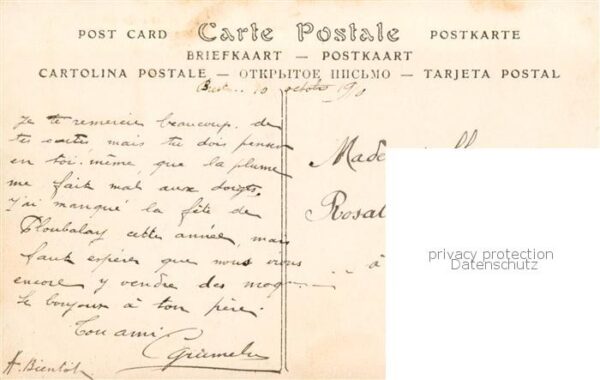 POST CARD Carte Postale POSTKARTE
BRIEFKAART — POSTKAART
CARTOLINA POSTALE — ОТКРЫТОЕ ПИСЬМО — TARJETA POSTAL
10 octobre
Je te remercie beaucoup de
tes cartes, mais tu dois penser
en toi-même, que la plume
me fait mal aux doigts,
j'ai manqué la fête de
Ploubalay cette année, mais
faut espérer que nous irons
encore y vendre des
le bonjour à ton père.
Ton ami
A. Bientôt
Made
Rosal
à
privacy protection
Datenschutz